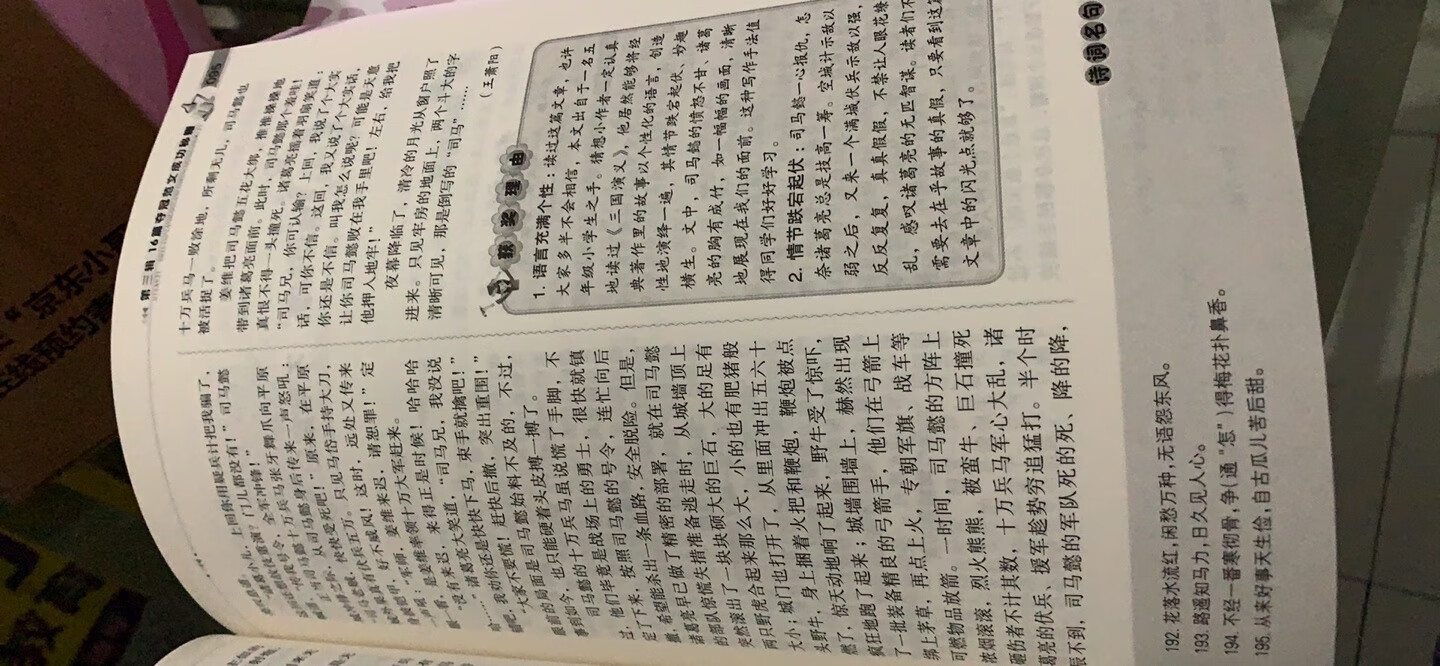 第三辑 16篇夺冠范文成功秘籍
095
“诸葛小儿，上回你用疑兵计把我骗了，
这回还想故伎重演？门儿都没有！”司马懿
全军冲锋！”
正当司马懿十万兵马张牙舞爪向平原
城冲来时，从司马懿身后传来一声怒吼：
快快受死吧！”原来，在平原
城外还有伏兵五万。只见马岱手持大刀，
好不威风！这时，远处又传来
“军师，姜维来迟，请恕罪！”定
睛一看，是姜维率领十万大军赶来。
“没有来迟，来得正是时候！哈哈哈
哈……”诸葛亮大笑道，“司马兄，我没说
错吧，我劝你还是快快下马，束手就擒吧！”
“大家不要慌！赶快后撤，突出重围！”
眼前的局面是司马懿始料不及的，不过，
事到如今，也只能硬着头皮搏一搏了。
司马懿的十万兵马虽说慌了手脚，不
过，他们毕竟是战场上的勇士，很快就镇
定了下来，按照司马懿的号令，连忙向后
撤，希望能杀出一条血路，安全脱险。但是，
诸葛亮早已做了精密的部署，就在司马懿
的部队惊慌失措准备逃走时，从城墙顶上
突然滚出了一块块硕大的巨石，大的足有
两只野虎合起来那么大，小的也有肥猪般
大小；城门也打开了，从里面冲出五六十
头野牛，身上捆着火把和鞭炮，鞭炮被点
燃了，惊天动地响了起来，野牛受了惊吓，
疯狂地跑了起来；城墙围墙上，赫然出现
了一批装备精良的弓箭手，他们在弓箭上
绑上茅草，再点上火，专朝军旗、战车等
可燃物品放箭。一时间，司马懿的方阵上
浓烟滚滚，烈火熊熊，被蛮牛、巨石撞死
砸伤者不计其数，十万兵马军心大乱，诸
葛亮的伏兵、援军趁势穷追猛打。半个时
辰不到，司马懿的军队死的死、降的降，
十万兵马一败涂地，所剩无几，司马懿也
被活捉了。
姜维把司马懿五花大绑，推推搡搡地
带到诸葛亮面前。此时，司马懿那个羞哇！
真恨不得一头撞死。诸葛亮摇着羽扇笑道：
“司马兄，你可认输？上回，我说了个大实
话，可你不信。这回，我又说了个大实话，
你还是不信。叫我怎么说呢？可能是天意
让你司马懿败在我手里吧！左右，给我把
他押入地牢！”
夜幕降临了，清冷的月光从窗户照了
进来。只见牢房的地面上，两个斗大的字
清晰可见，那是倒写的“司马”……
（王萧阳）
获奖理由
1. 语言充满个性：读过这篇文章，也许
大家多半不会相信，本文出自于一名五
年级小学生之手。猜想小作者一定认真
地读过《三国演义》，他居然能够将经
典著作里的故事以个性化的语言，创造
性地演绎一遍，其情节跌宕起伏、妙趣
横生。文中，司马懿的愤怒不甘、诸葛
亮的胸有成竹，如一幅幅的画面，清晰
地展现在我们的面前。这种写作手法值
得同学们好好学习。
2. 情节跌宕起伏：司马懿一心报仇，怎
奈诸葛亮总是技高一筹。空城计示敌以
弱之后，又来一个满城伏兵示敌以强，
反反复复，真真假假，不禁让人眼花缭
乱，感叹诸葛亮的无匹智谋。读者们不
需要去在乎故事的真假，只要看到这篇
文章中的闪光点就够了。
诗词名句
192. 花落水流红，闲愁万种，无语怨东风。
193. 路遥知马力，日久见人心。
194. 不经一番寒彻骨，争（通“怎”）得梅花扑鼻香。
195. 从来好事天生俭，自古瓜儿苦后甜。